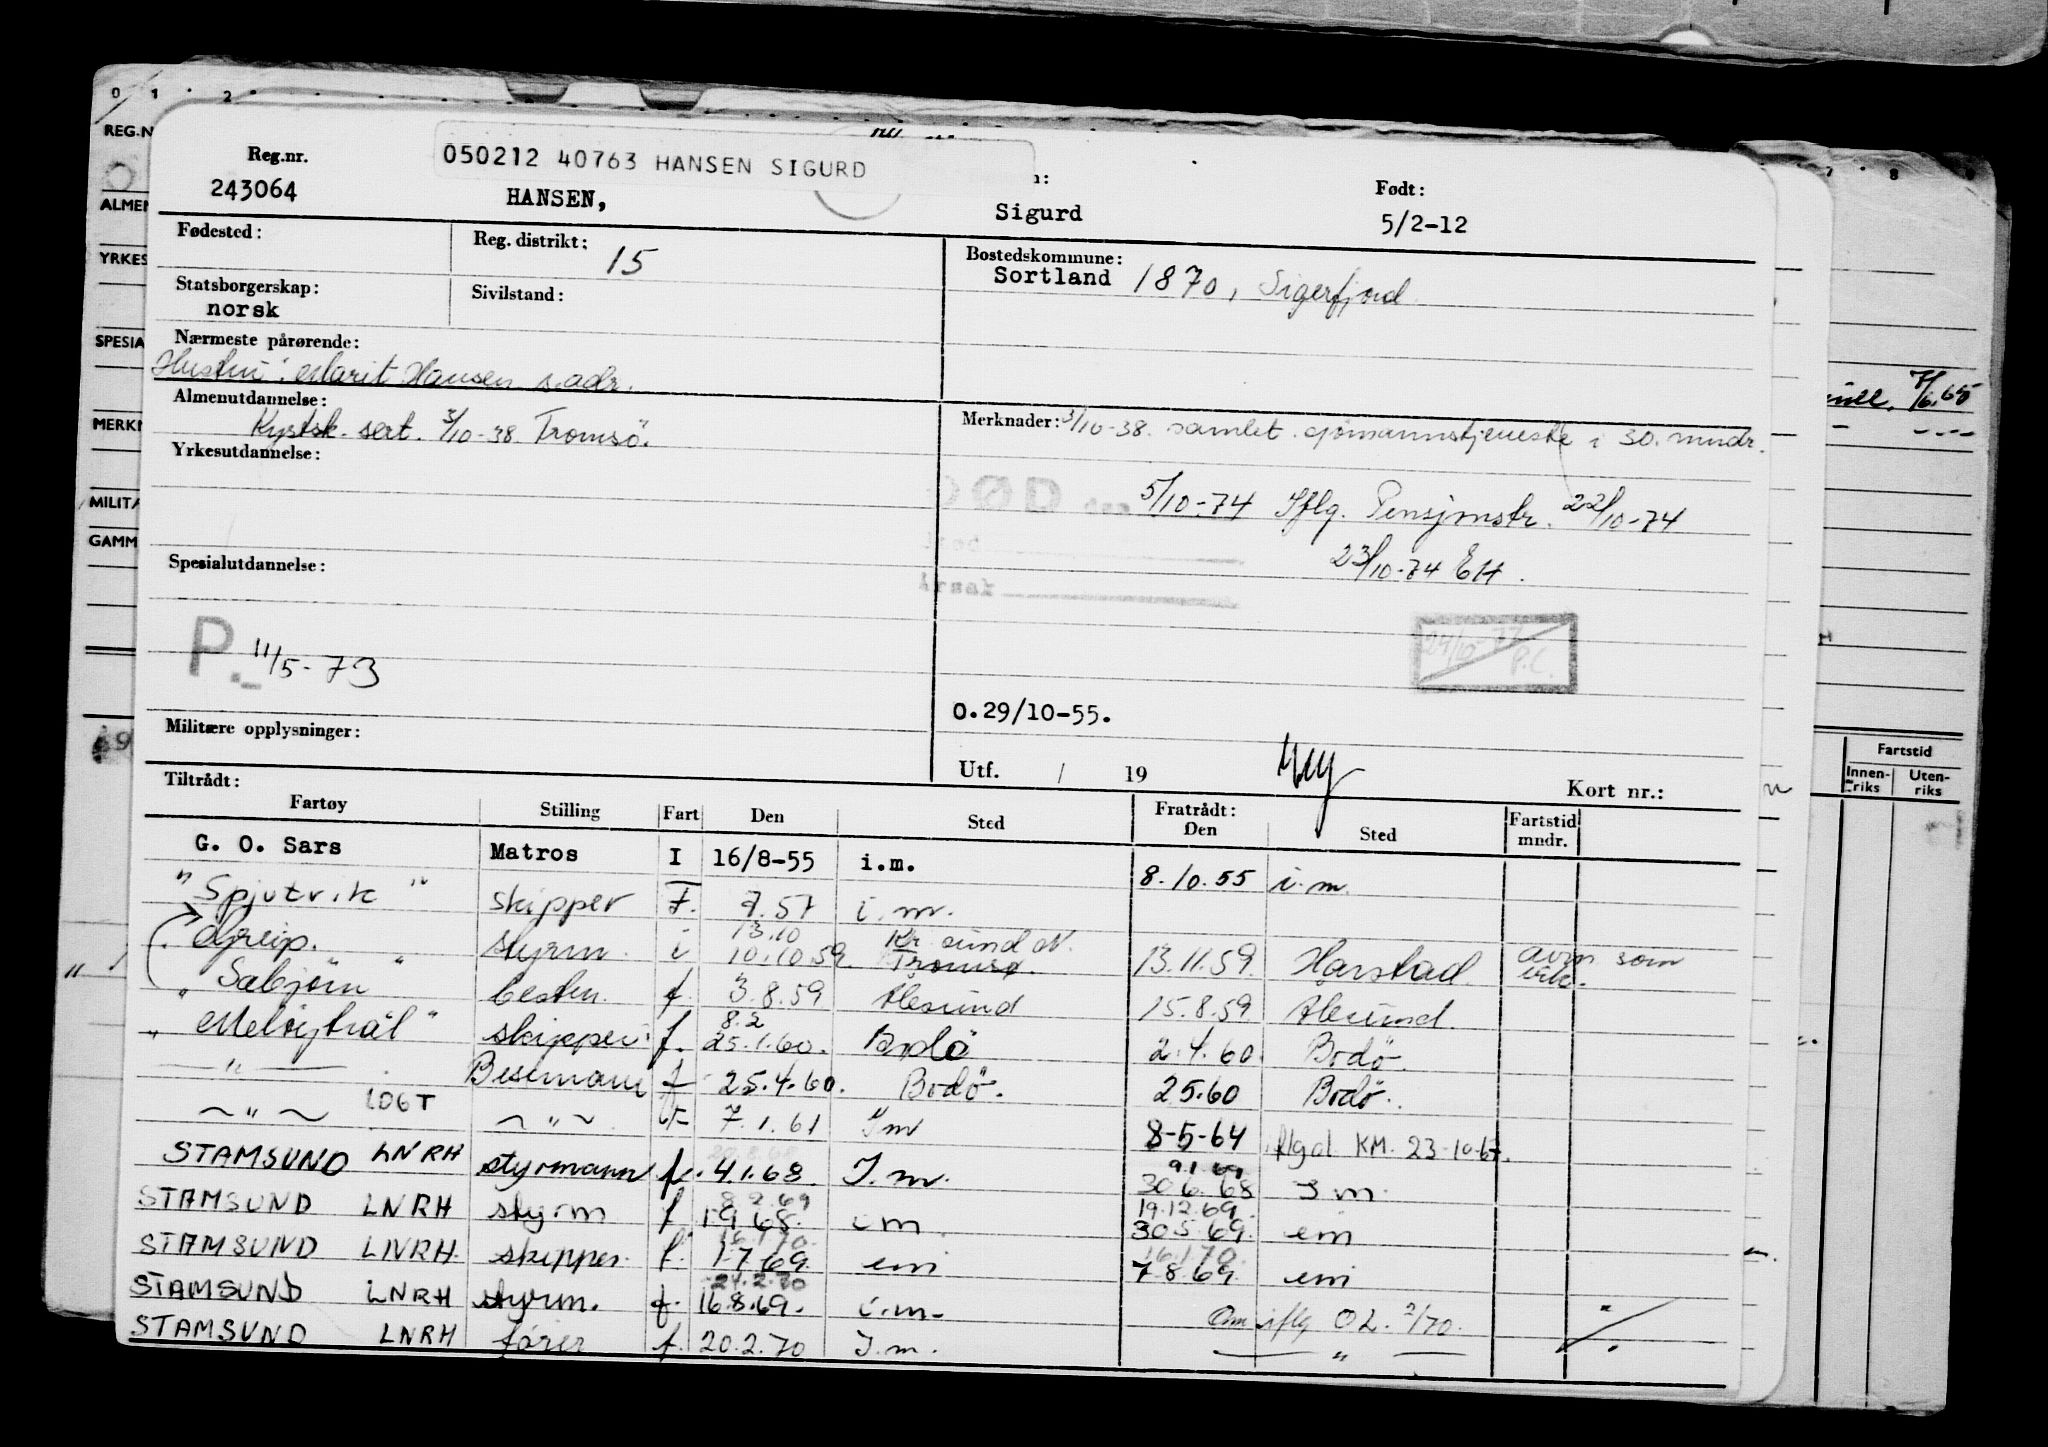 050212 40763 HANSEN SIGURD
Reg.nr.
243064
HANSEN,
Sigurd
Født:
5/2-12
Fødested:
Reg. distrikt: 15
Bostedskommune:
Sortland 1870, Sigerfjord
Statsborgerskap:
norsk
Sivilstand:
Nærmeste pårørende:
Hustru: Marit Hansen s. adr.
Almenutdannelse:
Kystsk. sert. 3/10-38. Tromsö.
Merknader: 3/10-38. samlet sjömannstjeneste i 30. mndr.
Yrkesutdannelse:
DØD 5/10-74 Iflg. Pensjonstr. 22/10-74
23/10-74 EH.
Årsak
Spesialutdannelse:
P.- 11/5-73
P.C.
O.29/10-55.
Militære opplysninger:
Utf. / 19
Kort nr.:
Tiltrådt:
Fratrådt:
Fartøy Stilling Fart Den Sted Den Sted Fartstid mndr.
G. O. Sars Matros I 16/8-55 i.m. 8.10.55 i.m.
"Spjutvik" skipper F. 7.57 i.m.
13.10 Kr. sund N.
Greip. styrm. i 10.10.59. Tromsø. 13.11.59. Harstad avm som
" Sæbjörn " besten. f. 3.8.59 Alesund 15.8.59 Alesund.
8.2
" Meløytrål " skipper f. 25.1.60. Bodö 2.4.60. Bodö.
— " — Bestmann f 25.4.60. Bodö. 25.60 Bodö.
— " — LDGT — " — 7.1.61 I m 8-5-64 iflg al KM. 23-10-67.
20.8.68 9.1.69
STAMSUND LNRH styrmann f. 4.1.68. I.m. 30.6.68 I m.
8.2.69 19.12.69.
STAMSUND LNRH styrm f 1.9.68. i m 30.5.69. im
16.1.70. 16.1.70.
STAMSUND LNRH. skipper. f. 1.7.69. im 7.8.69 im
24.2.70
STAMSUND LNRH styrm. f. 16.8.69. i.m. Om iflg OL. 2/70.
STAMSUND LNRH fører f. 20.2.70 I.m. — " —
REG.N
ALMEN
YRKES
SPESIA
MERKN
MILITÆ
GAMM
7/6.65
Fartstid
Innen-
riks
Uten-
riks